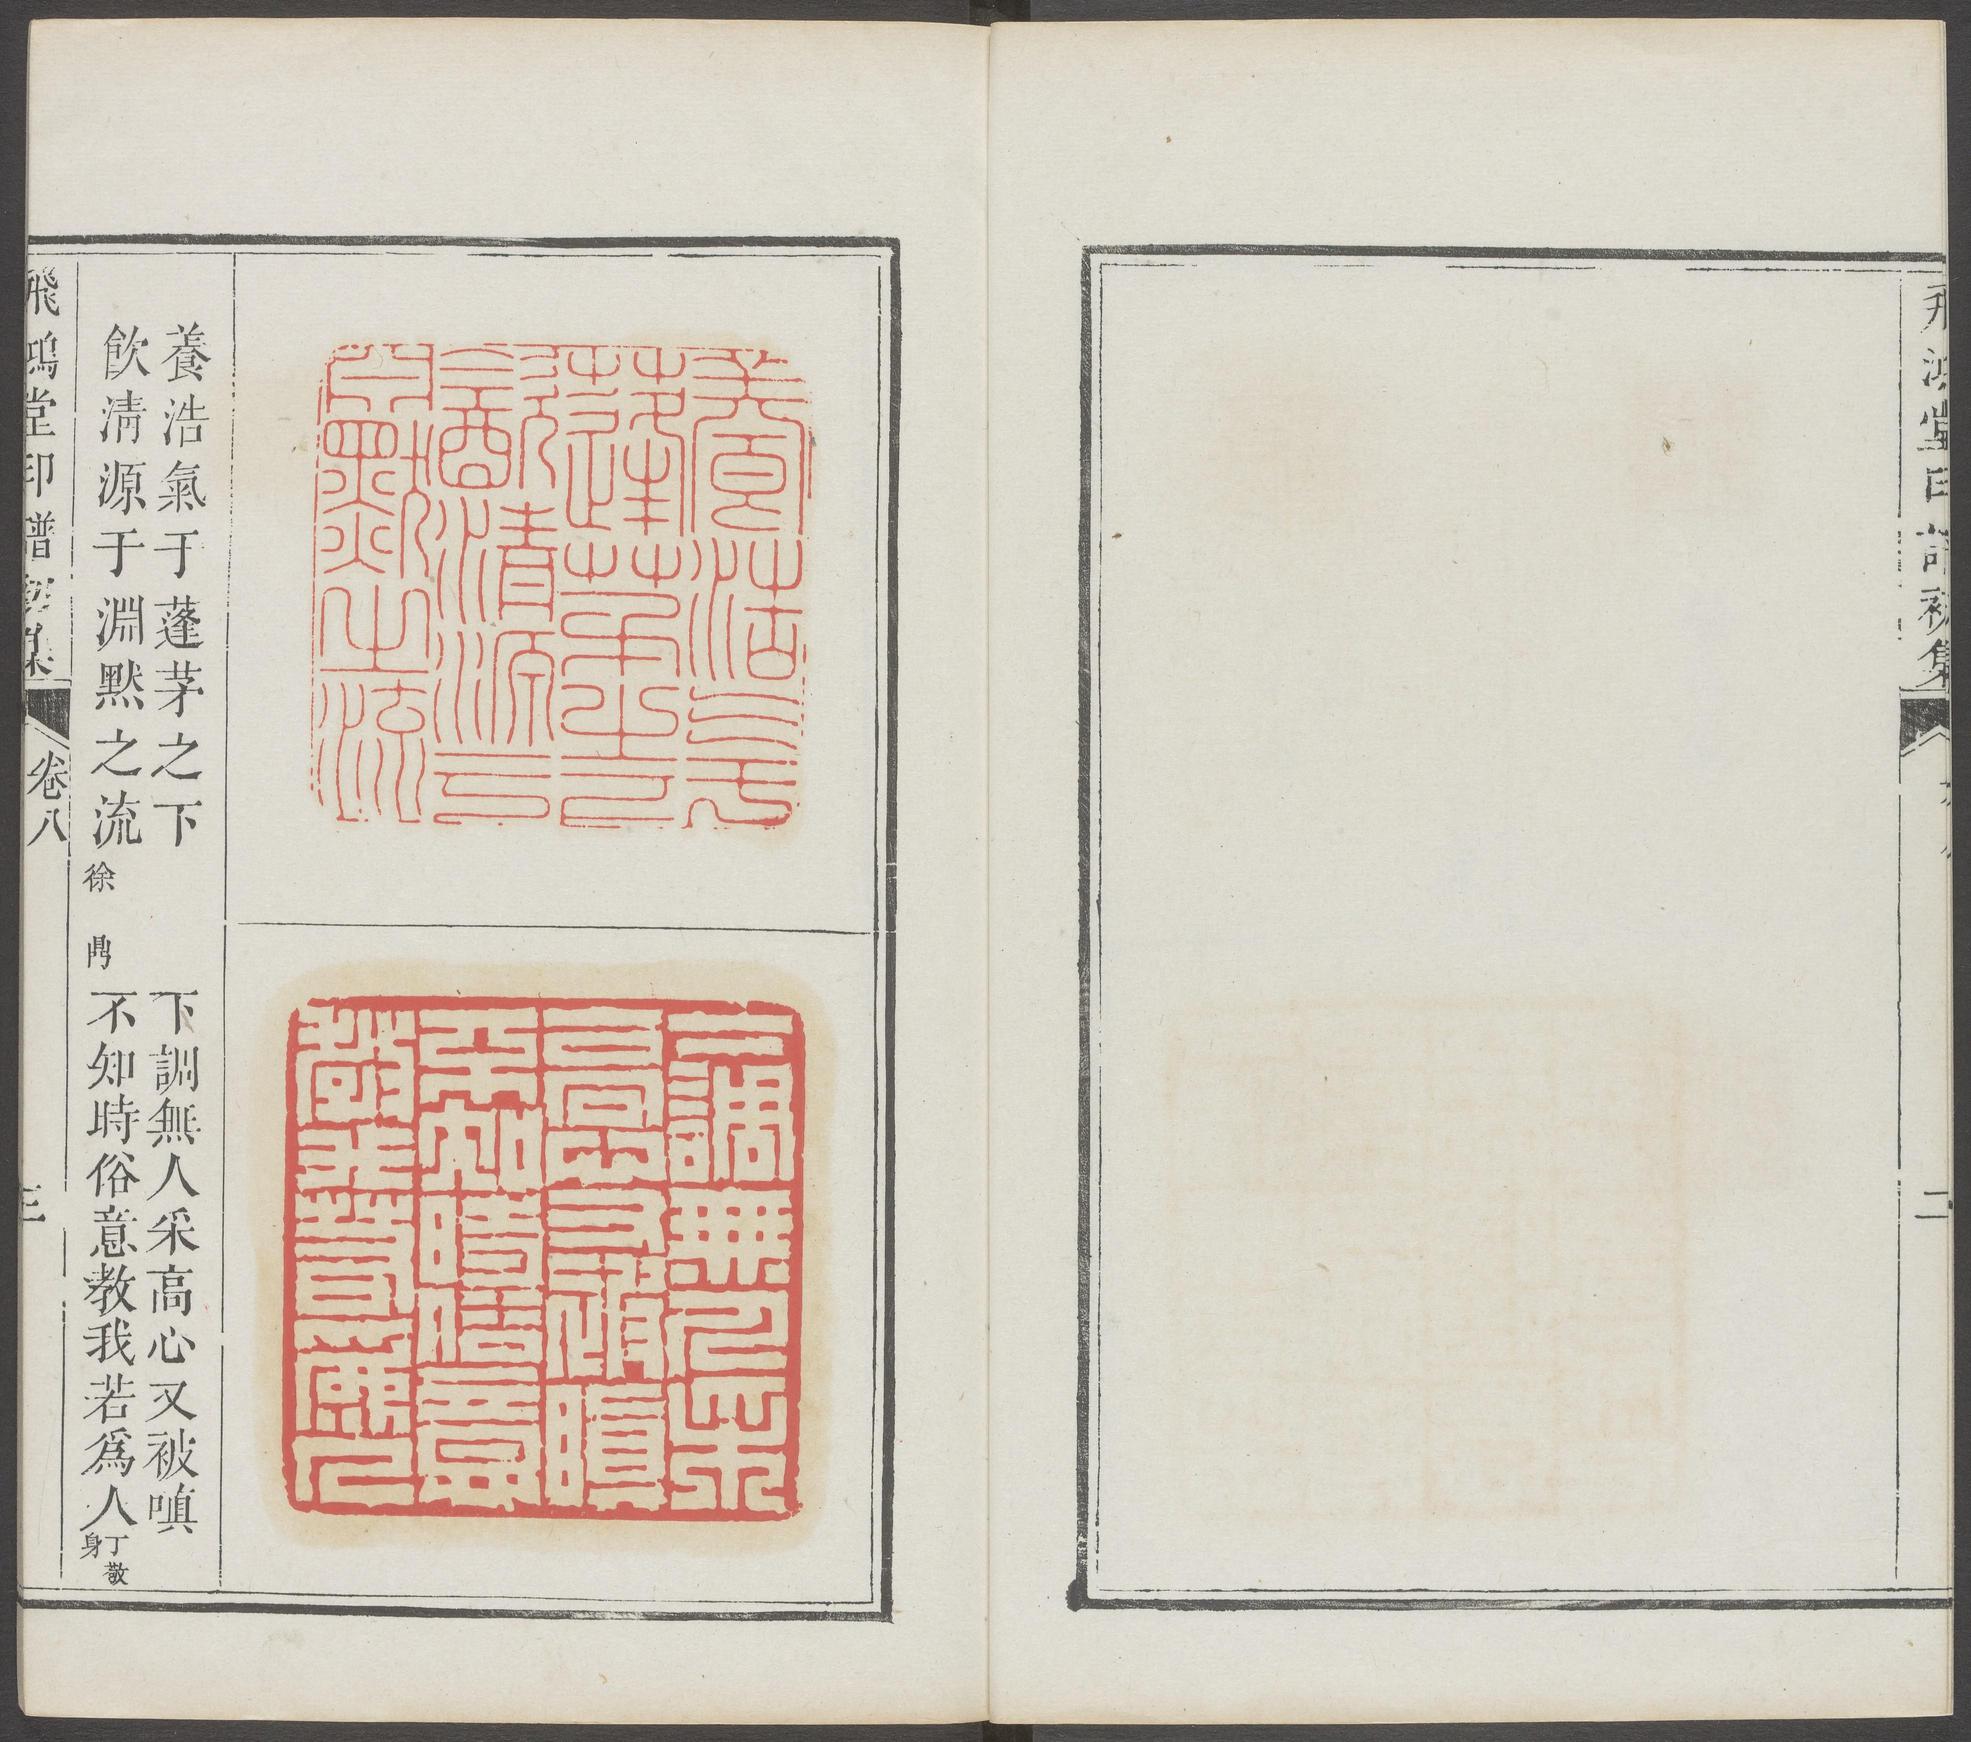 飛鴻堂印譜初集
二
養浩氣于蓬茅之下
飲淸源于淵黙之流
徐鼎
下調無人采高心又被嗔
不知時俗意教我若爲人
丁敬身
飛鴻堂印譜初集
卷八
三